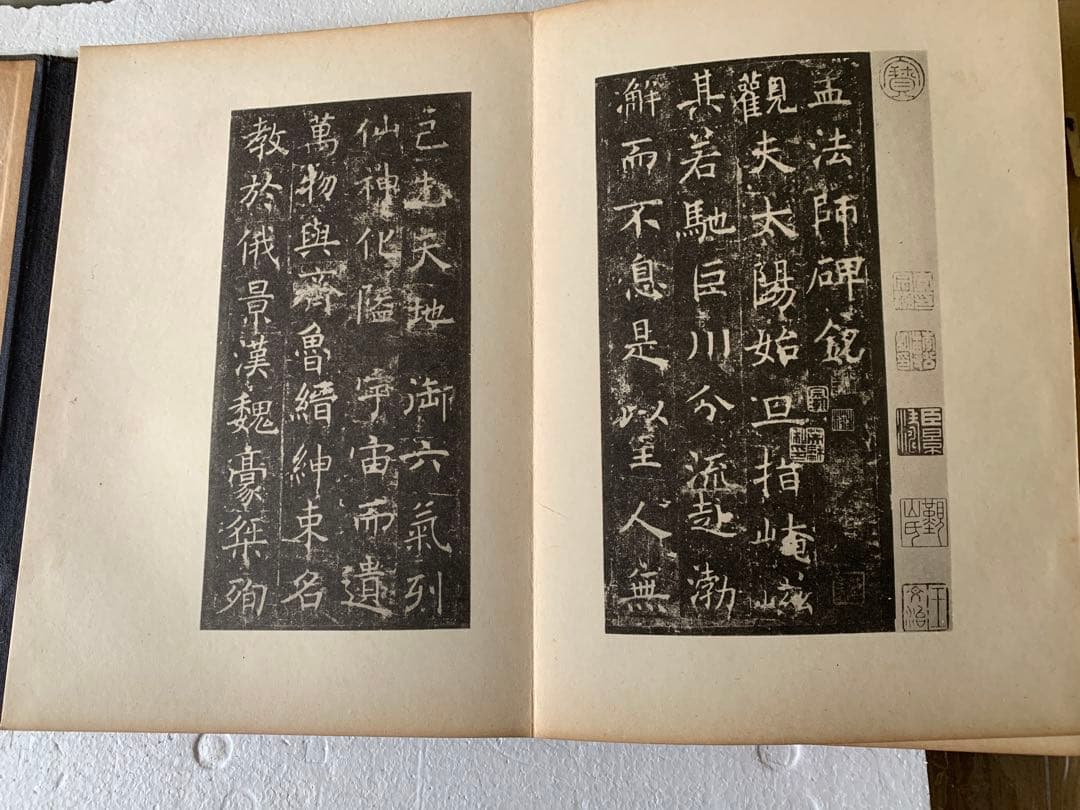 孟法師碑銘
觀夫太陽始旦指崦嵫
其若馳巨川分流赴渤
解而不息是以至人無
己先天地御六氣列
仙神化隘宇宙而遺
萬物與齊魯縉紳束名
教於俄景漢魏豪桀殉
寶
王文治